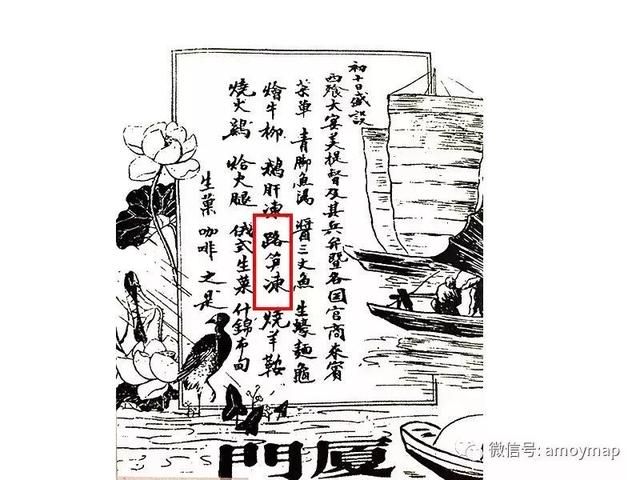 初十日盛設
西飱大宴美提督及其兵弁暨各国官商来賓
菜单 青脚魚湯 醬三文魚 生蠔麵龜
燴牛柳 鵝肝凍 路笋凍 燒羊鞍
燒火鷄 烚火腿 俄式生菜 什錦布甸
生菓 咖啡 之是
厦門
微信号: amoymap